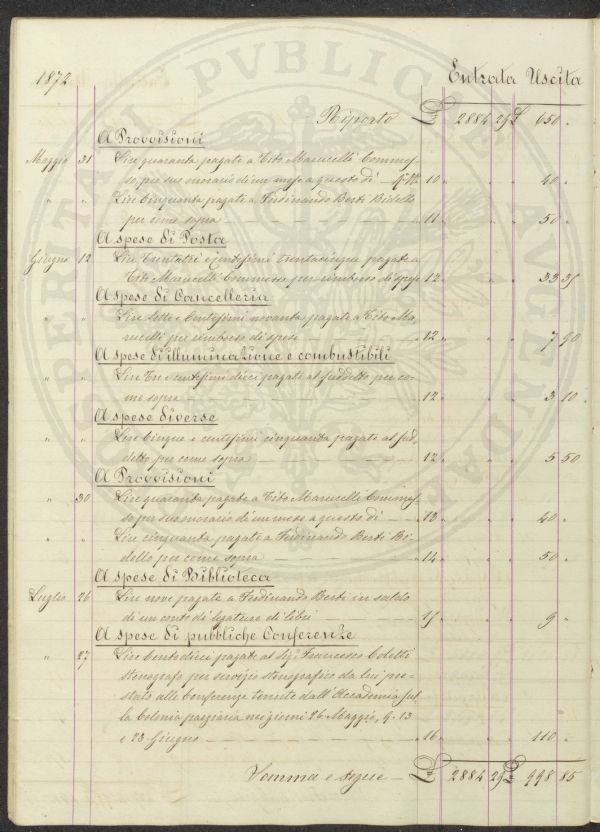 1872 Entrata Uscita
Riporto £ 2884 29 £ 650 "
A Provvisioni
Maggio 31 Lire quaranta pagate a Tito Marucelli Commes-
so, per suo onorario di un mese a questo dì — 10 " " " 40 "
" " Lire Cinquanta pagate a Ferdinando Berti Bidello
per come sopra — 11 " " " 50 "
A spese di Posta
Giugno 12 Lire trentatrè e centesimi trentacinque pagate a
Tito Marucelli Commesso per rimborso di spese 12 " " " 33 35
A spese di Cancelleria
" " Lire Sette e Centesimi novanta pagate a Tito Ma-
rucelli per rimborso di spese 12 " " " 7 90
A spese d'illuminazione e combustibili
" " Lire Tre e centesimi dieci pagate al suddetto per co-
me sopra — 12 " " " 3 10
A spese diverse
" " Lire Cinque e centesimi cinquanta pagate al sud-
detto per come sopra — 12 " " " 5 50
A Provvisioni
" 30 Lire quaranta pagate a Tito Marucelli Commes-
so, per suo onorario di un mese a questo dì — 13 " " " 40 "
" " Lire cinquanta pagate a Ferdinando Berti Bi-
dello per come sopra — 14 " " " 50 "
A spese di Biblioteca
Luglio 26 Lire nove pagate a Ferdinando Berti in saldo
di un conto di legature di libri — 15 " " " 9 "
A spese di pubbliche Conferenze
" 27 Lire Centodieci pagate al Sig.r Francesco Coletti
stenografo per servizio stenografico da lui pre-
stato alle Conferenze tenute dall'Accademia sul-
la Colonia parziaria nei giorni 26 Maggio, 9-13
e 23 Giugno — 16 " " " 110 "
Somma e segue — £ 2884 29 £ 998 85
PROSPERITATI PVBLICAE AVGENDAE